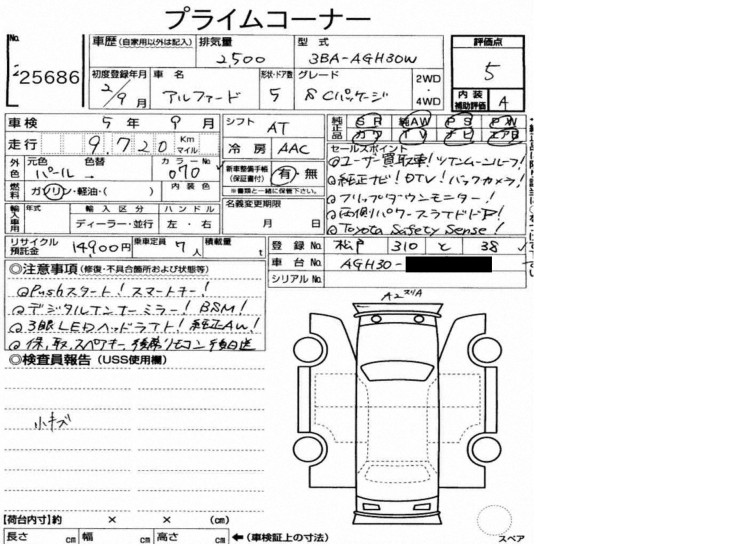 プライムコーナー
No. 25686
車歴 (自家用以外は記入) 排気量 2,500 型式 3BA-AGH30W 評価点 5
初度登録年月 2/9月 車名 アルファード 形状・ドア数 5 グレード S Cパッケージ 2WD・4WD 内装補助評価 A
車検 5年9月 シフト AT 純正品 SR 純AW PS PW
走行 9,720 Km マイル 冷房 AAC カワ TV ナビ エアB
外色 元色 パール 色替 カラーNo. 070 新車整備手帳 (保証書付) 有・無
※書類と一緒に保管下さい。
燃料 ガソリン・軽油・( ) 内装色
名義変更期限 月 日
輸入車用 年式 輸入区分 ディーラー・並行 ハンドル 左・右
セールスポイント
◎ユーザー買取車!ツインムーンルーフ!
◎純正ナビ!DTV!バックカメラ!
◎フリップダウンモニター!
◎両側パワースライドドア!
◎Toyota Safety Sense!
リサイクル預託金 14,900円 乗車定員 7人 積載量 t 登録No. 松戸 310 と 38
車台No. AGH30-
シリアルNo.
◎注意事項 (修復・不具合箇所および状態等)
◎Pushスタート!スマートキー!
◎デジタルインナーミラー!BSM!
◎3眼LEDヘッドライト!純正AW!
◎保、取、スペアキー、後席リモコン後日送
◎検査員報告 (USS使用欄)
小キズ
A2
【荷台内寸】約 × × (cm)
長さ cm 幅 cm 高さ cm ←(車検証上の寸法)
スペア